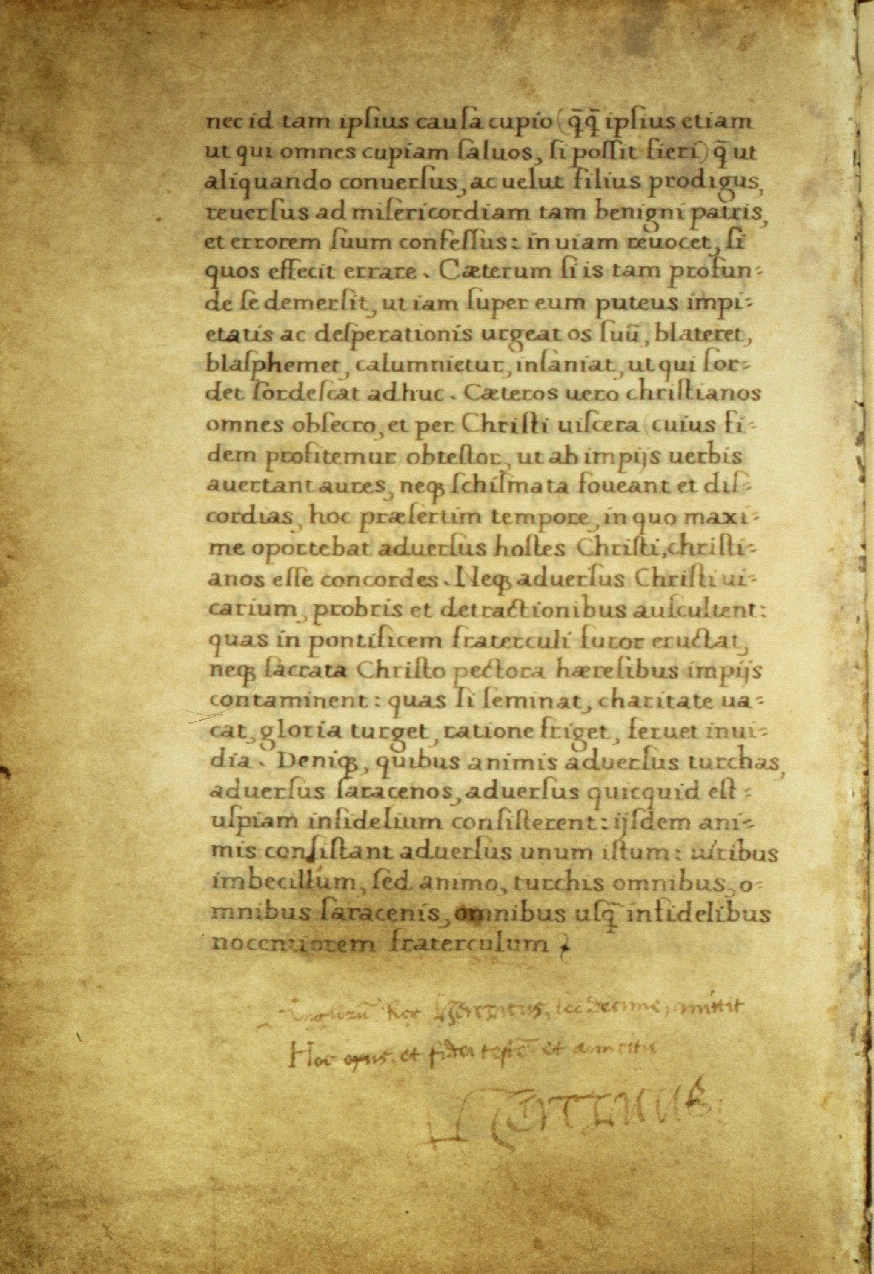 nec id tam ipſius cauſa cupio (q̄q̄ ipſius etiam
ut qui omnes cupiam ſaluos, ſi poſſit fieri) q̄ ut
aliquando conuerſus, ac uelut filius prodigus,
reuerſus ad miſericordiam tam benigni patris,
et errorem ſuum confeſſus: in uiam reuocet, ſi
quos effecit errare. Cæterum ſi is tam profun-
de ſe demerſit, ut iam ſuper eum puteus impi-
etatis ac deſperationis urgeat os ſuū, blateret,
blaſphemet, calumnietur, inſaniat, ut qui ſor-
det ſordeſcat adhuc. Cæteros uero chriſtianos
omnes obſecro, et per Chriſti uiſcera (cuius fi-
dem profitemur obteſtor, ut ab impijs uerbis
auertant aures, neqꝫ ſchiſmata foueant et diſ-
cordias, hoc præſertim tempore, in quo maxi-
me oportebat aduerſus hoſtes Chriſti, chriſti-
anos eſſe concordes. Neqꝫ aduerſus Chriſti ui-
carium, probris et detractionibus auſcultent:
quas in pontificem fraterculi furor eructat,
neqꝫ ſacrata Chriſto pectora hæreſibus impijs
contaminent: quas ſi ſeminat, charitate ua-
cat, gloria turget, ratione friget, feruet inui-
dia. Deniqꝫ, quibus animis aduerſus turchas,
aduerſus ſaracenos, aduerſus quicquid eſt
uſpiam infidelium conſiſterent: ijſdem ani-
mis conſiſtant aduerſus unum iſtum: uiribus
imbecillum, ſed animo, turchis omnibus, o-
mnibus ſaracenis, omnibus uſq̄ infidelibus
nocentiorem fraterculum
Anglorū Rex Henricus, leo decime, mittit
Hoc opus, et fidei teſtē et amicitie
Henricus